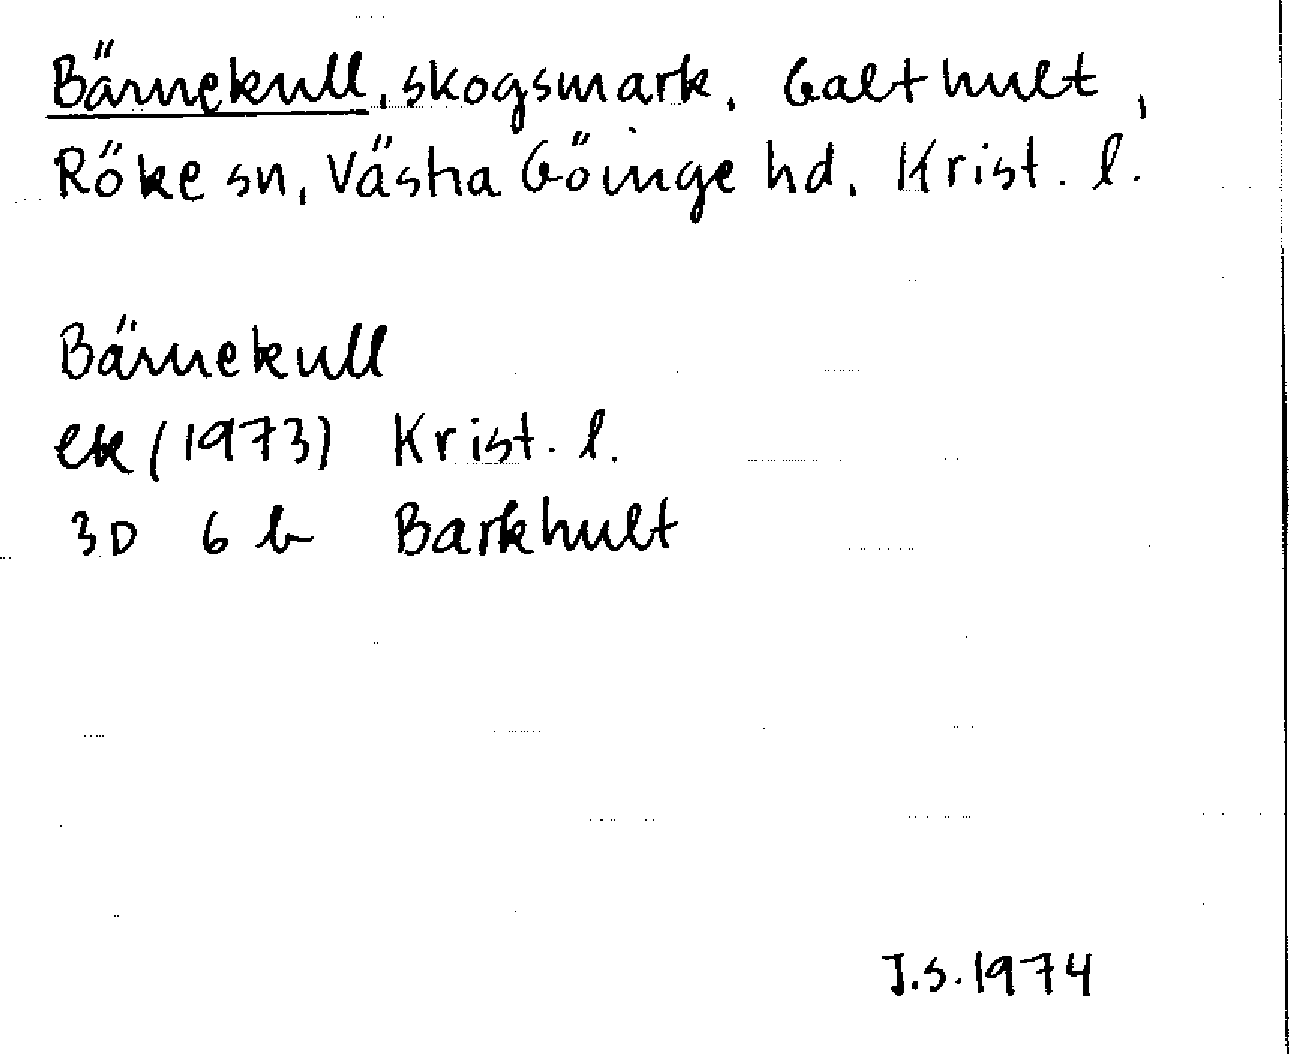 Bärnekull, skogsmark, Galthult,
Röke sn, Västra Göinge hd, Krist. l.
Bärnekull
ek (1973) Krist. l.
3D 6 b Barkhult
J.S. 1974